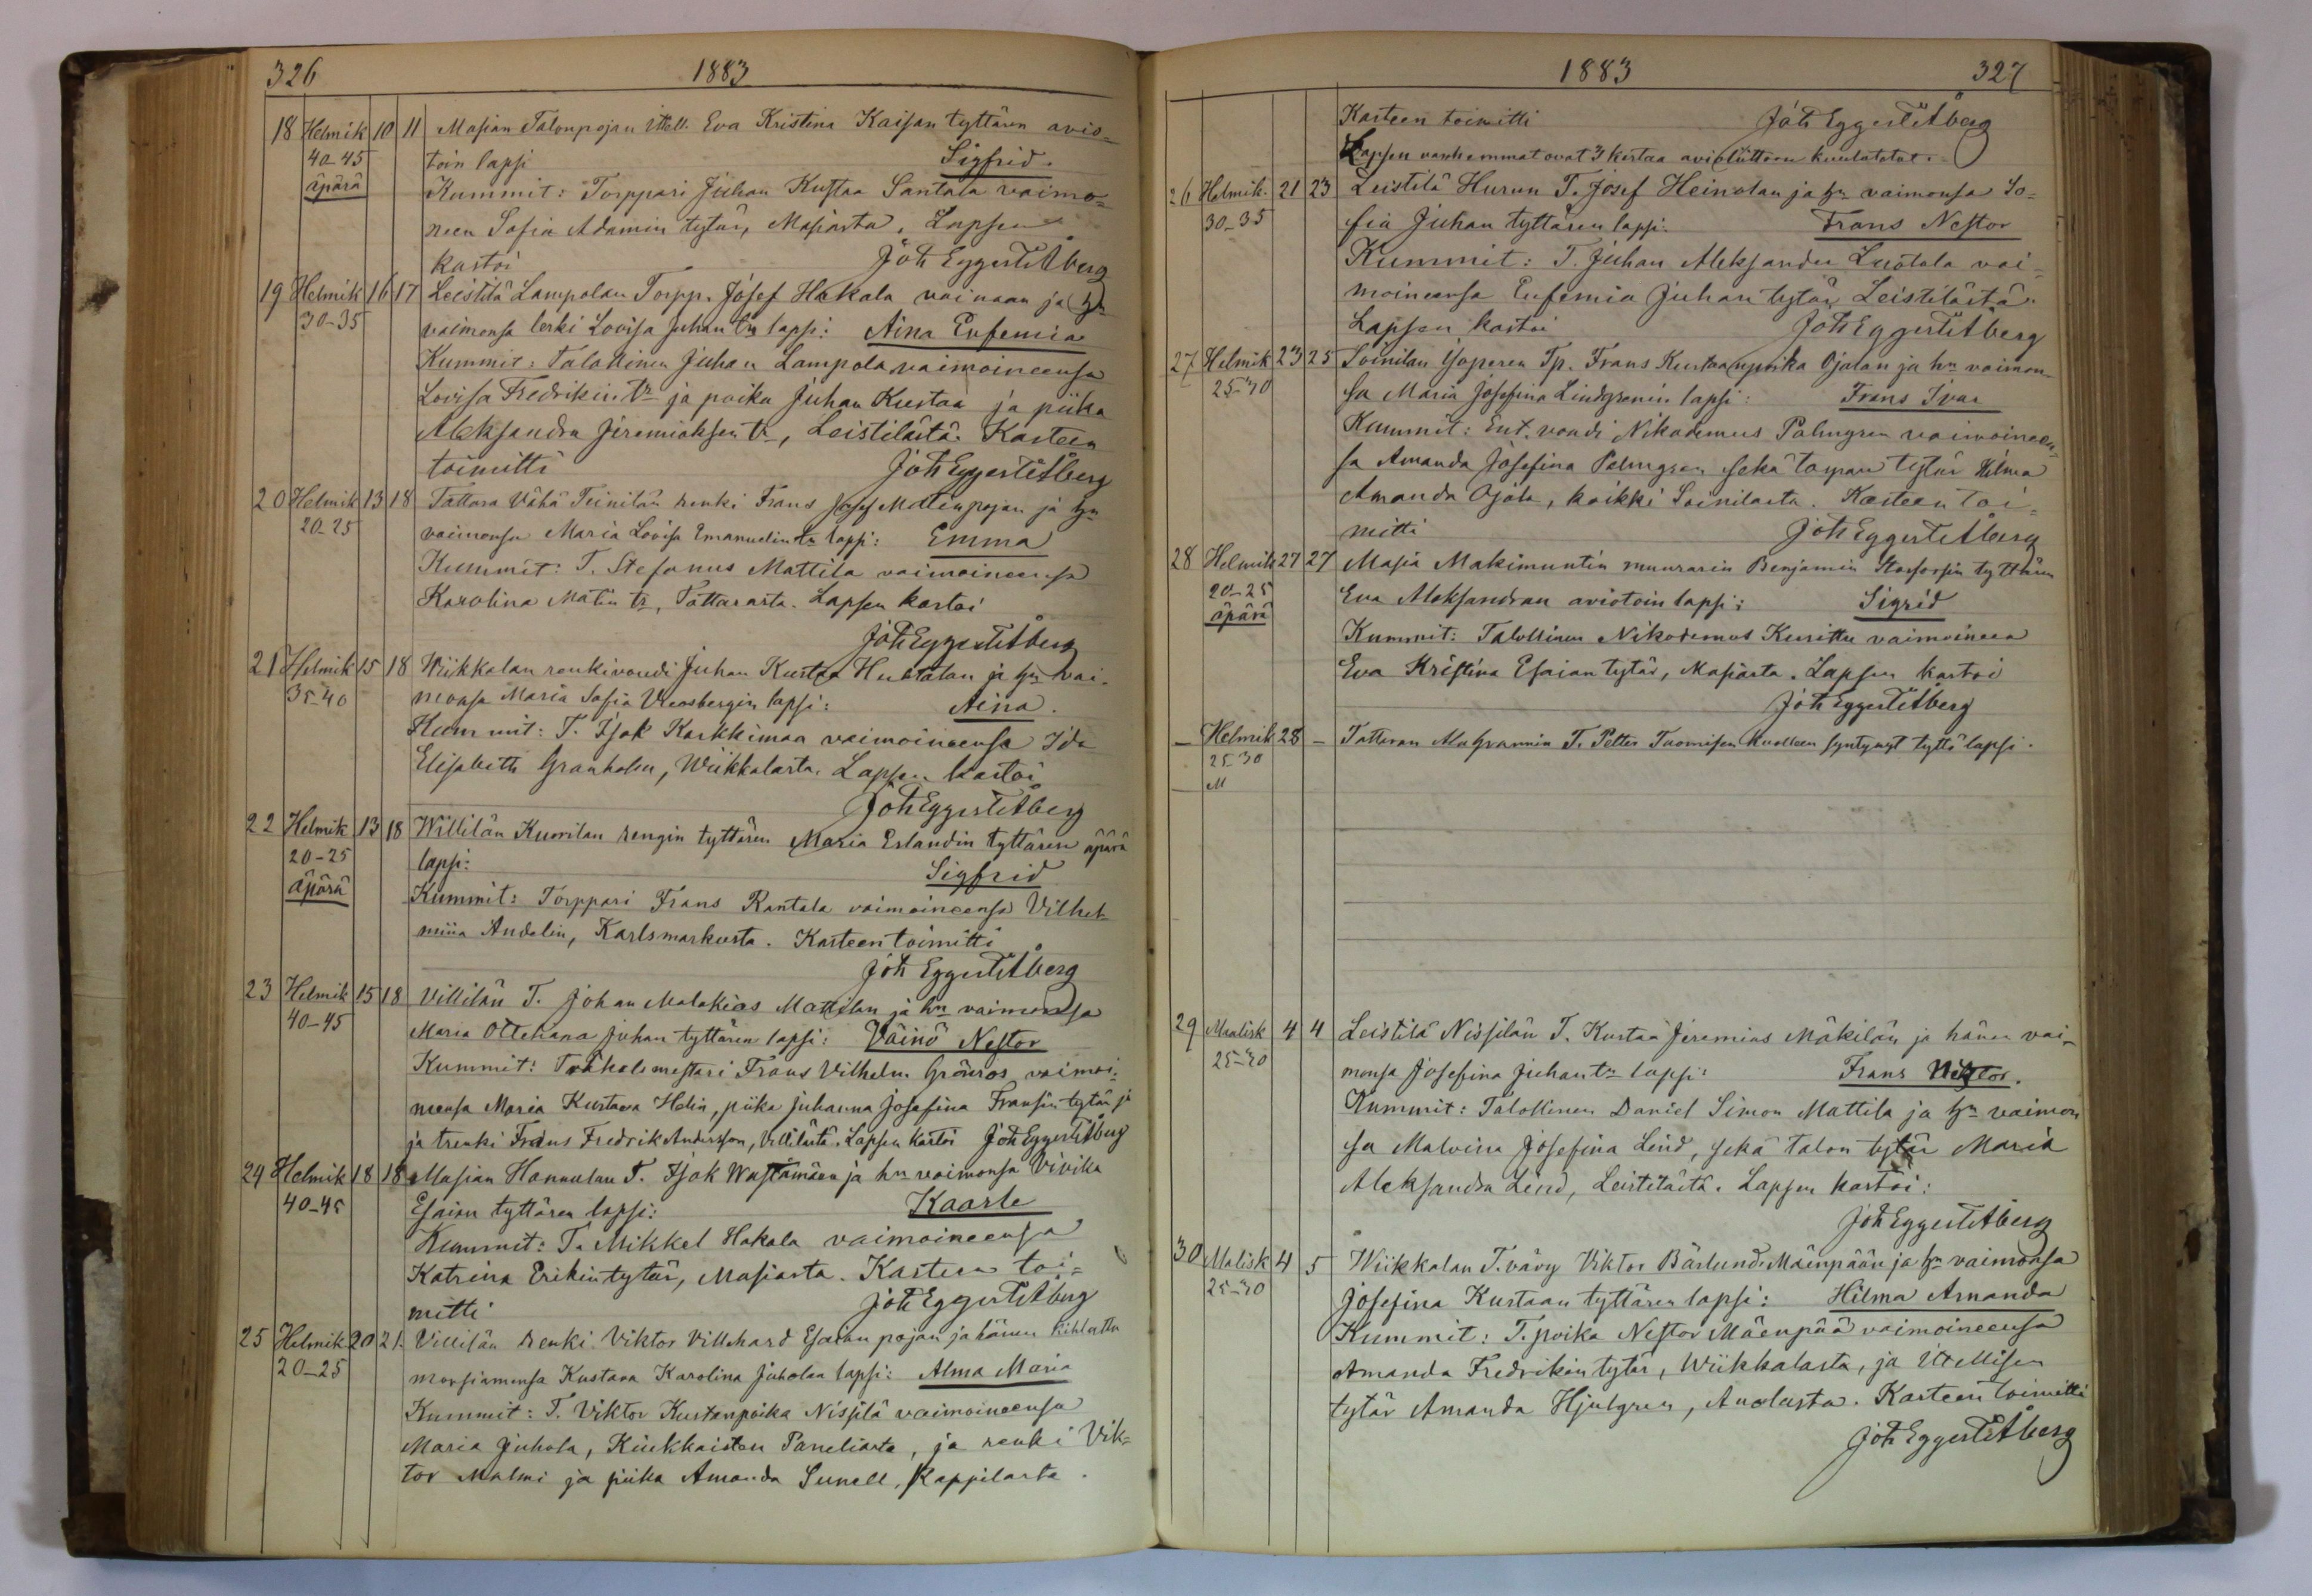 326 1883
18 Helmik 10 11 Masian Talonpojan Itell. Eva Kristina Kaisan tyttären avio=
40-45 toin lapsi Sigfrid.
äpärä Kummit: Torppari Juhan Kustaa Santala vaimo=
neen Sofia Adamin tytär, Masiasta. Lapsen
kastoi Joh Eggert Åberg
19 Helmik 16 17 Leistilä Lampolan Torpp. Josef Hakala vainaan ja hn
30-35 vaimonsa leski Lovisa Juhan tn lapsi: Aina Eufemia
Kummit: Talollinen Juhan Lampola vaimoineensa
Lovisa Fredrikin tr ja poika Juhan Kustaa ja piika
Aleksandra Jeremiaksen tr, Leistilästä. Kasteen
toimitti Joh Eggert Åberg
20 Helmik 13 18 Tattara Vähä Teinilän renki Frans Josef Matinpojan ja hn
20-25 vaimonsa Maria Lovisa Emanuelin tn lapsi: Emma
Kummit: T. Stefanus Mattila vaimoineensa
Karolina Matin tr, Tattarasta. Lapsen kastoi
Joh Eggert Åberg
21 Helmik 15 18 Wiikkalan renkivoudi Juhan Kustaa Huhtalan ja hn vai-
35-40 monsa Maria Sofia lapsi: Aina.
Kummit: T. Isak Karkkimaa vaimoineensa Ida
Elisabeth Granholm, Wiikkalasta. Lapsen kastoi
Joh Eggert Åberg
22 Helmik 13 18 Willilän Kurrilan rengin tyttären Maria Erlandin tyttären äpärä
20-25 lapsi: Sigfrid
äpärä Kummit: Torppari Frans Rantala vaimoineensa Vilhel-
miina Andelin, Karlsmarkusta. Kasteen toimitti
Joh Eggert Åberg
23 Helmik 15 18 Villilän T. Johan Malakias Mattilan ja hn vaimonsa
40-45 Maria Ottehana Juhan tyttären lapsi: Väinö Nestor
Kummit: Frans Vilhelm Grönros vaimoi-
neensa Maria Kustava Helin, piika Juhanna Josefina Fransin tytär ja
ja trenki Frans Fredrik Andersson, Villilästä. Lapsen kastoi Joh Eggert Åberg
24 Helmik 18 18 Masian Hannulan T. Isak Wästämäen ja hn vaimonsa Vivika
40-45 Esaian tyttären lapsi: Kaarle
Kummit: T. Mikkel Hakala vaimoineensa
Katrina Erikin tytär, Masiasta. Kasteen toi=
mitti Joh Eggert Åberg
25 Helmik 20 21. Villilän renki Viktor Villehard Esaian pojan ja hänen kihlattu
20-25 morsiamensa Kustava Karolina Juholan lapsi: Alma Maria
Kummit: T. Viktor Kustanpoika Nissilä vaimoineensa
Maria Juhola, Kiukkaisten Paneliasta, ja renki Vik=
tor Malmi ja piika Amanda Sunell, Kappilasta.
1883 327
Kasteen toimitti Joh Eggert Åberg
Lapsen vanhemmat ovat 3 kertaa avioliittoon kuulutetut.
26 Helmik. 21 23 Leistilä Hurun T. Josef Heinolan ja hn vaimonsa So=
30-35 fia Juhan tyttären lapsi. Frans Nestor
Kummit: T. Juhan Aleksander Luotola vai=
moineensa Eufemia Juhan tytär Leistilästä.
Lapsen kastoi Joh Eggert Åberg
27 Helmik 23 25 Soinilan Yoperen Tp. Frans Kustaanpoika Ojalan ja hn vaimon-
25-30 sa Maria Josefina Lindgrenin lapsi: Frans Ivar
Kummit: Ent. voudi Nikodemus Palmgren vaimoineen-
sa Amanda Josefina Palmgren sekä torpan tytär Hilma
Amanda Ojala, kaikki Soinilasta. Kasteen toi=
mitti Joh Eggert Åberg
28 Helmik 27 27 Masia Makimuntin muurarin Benjamin tyttären
20-25 Eva Aleksandran aviotoin lapsi: Sigrid
äpärä Kummit: Talollinen Nikodemus Kurittu vaimoineen
Eva Kristina Esaian tytär, Masiasta. Lapsen kastoi
Joh Eggert Åberg
– Helmik 28 – Tattaran T. Petter Tuomisen kuolleen syntynyt tyttölapsi.
25-30
M
29 Maalisk 4 4 Leistilä Nissilän T. Kustaa Jeremias Mäkilän ja hänen vai-
25-30 monsa Josefina Juhan tn lapsi: Frans Viktor.
Kummit: Talollinen Daniel Simon Mattila ja hn vaimon
sa Malvina Josefina Lind, sekä talon tytär Maria
Aleksandra Lind, Leistilästä. Lapsen kastoi:
Joh Eggert Åberg
30 Malisk 4 5 Wiikkalan T. vävy Viktor Bärlund Mäenpään ja hn vaimonsa
25-30 Josefina Kustaan tyttären lapsi: Hilma Amanda
Kummit: T. poika Nestor Mäenpää vaimoineensa
Amanda Fredrikin tytär, Wiikkalasta, ja Itellisen
tytär Amanda Hjulgren, Anolasta. Kasteen toimitti
Joh Eggert Åberg